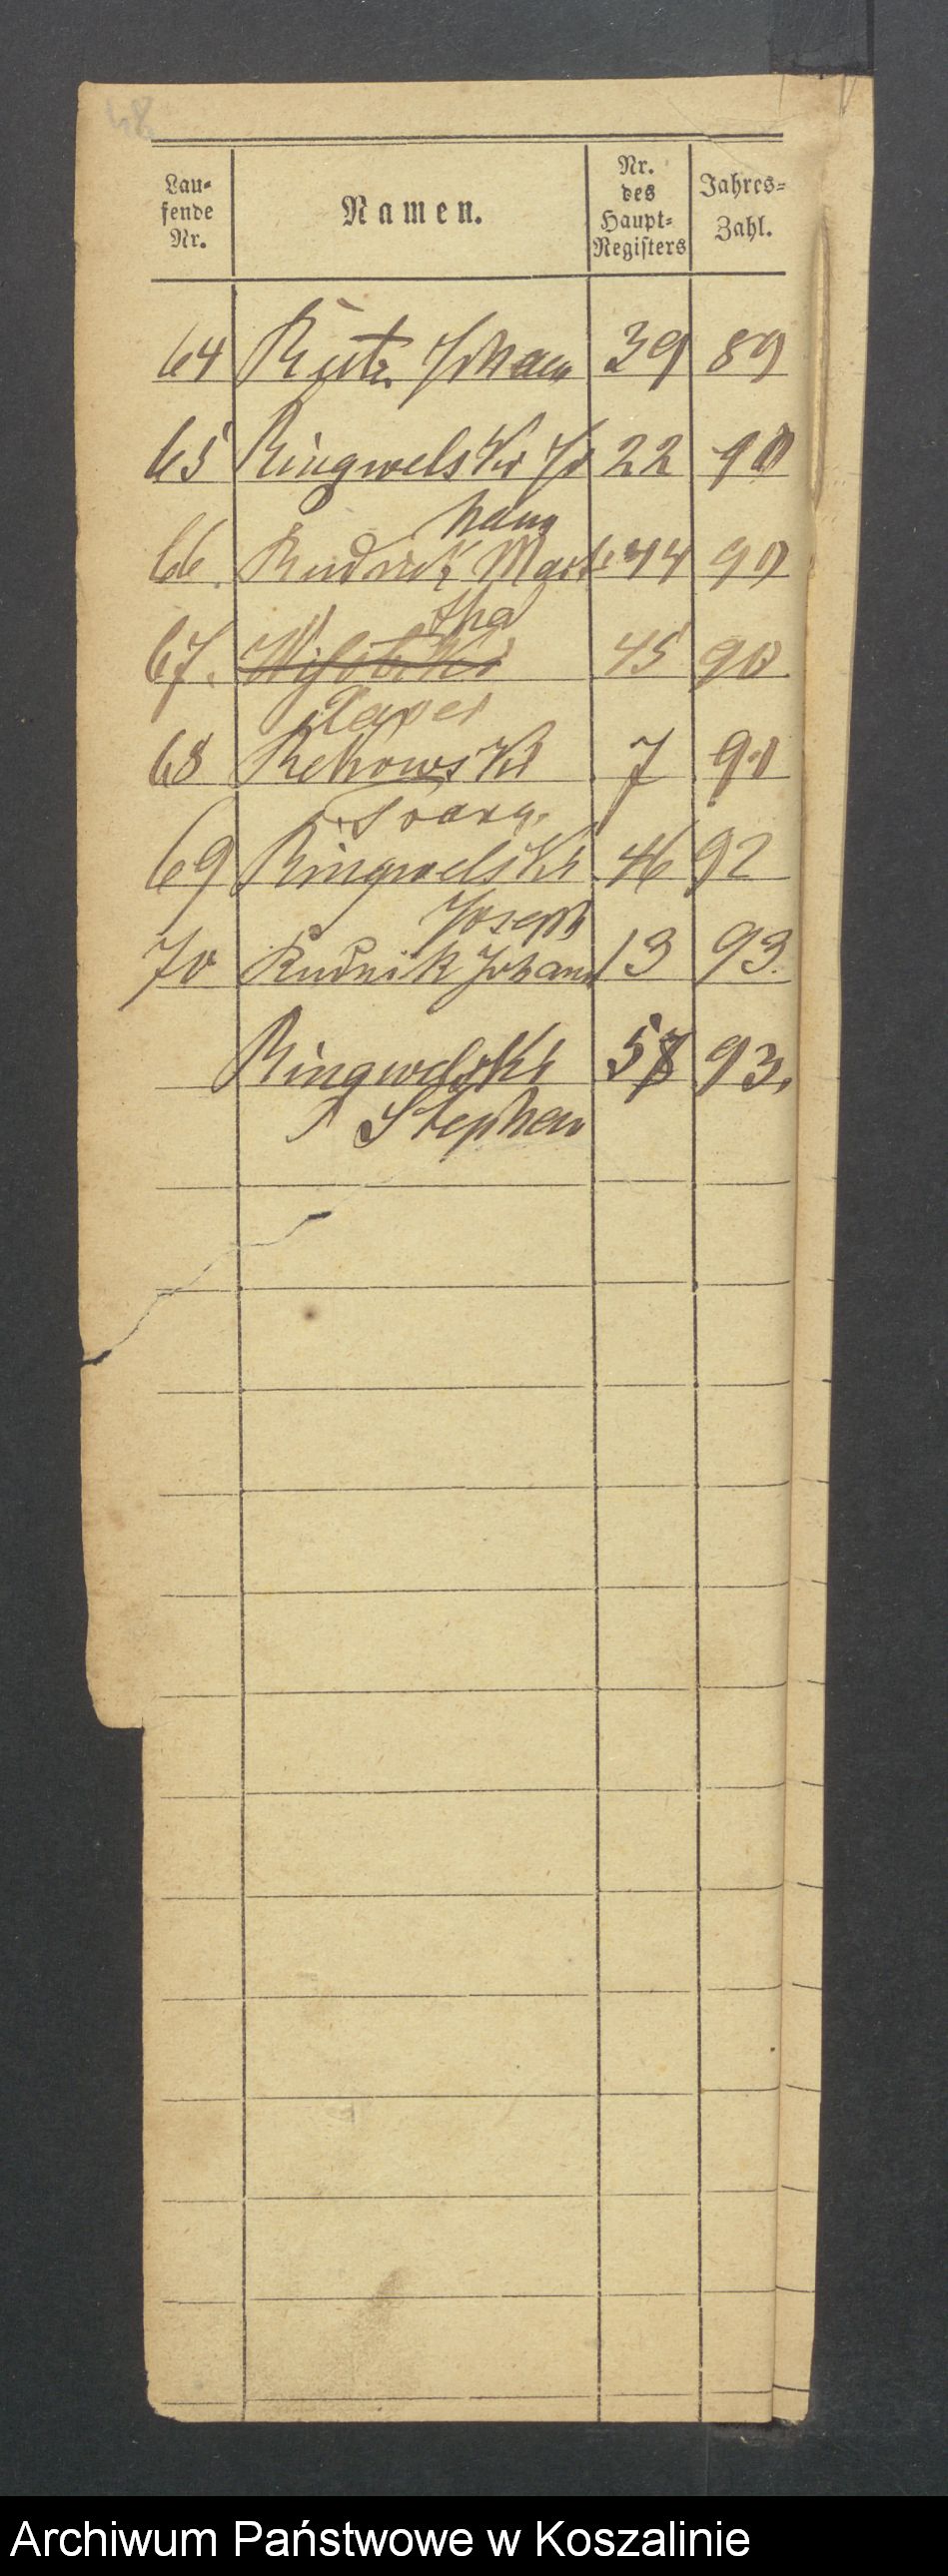 48
Lau=
fende
Nr.
Namen.
Nr.
des
Haupt=
Registers
Jahres=
Zahl.
64 Rutz Johann 39 89
65 Ringwelski Jo 22 90
hann
66. Rudnick Mart 44 90
tha
67. 45 90
68 Rekowski 7 91
Franz.
69 Ringwelski 46 92
Joseph
70 Rudnik Johann 13 93.
Ringwelski 57 93.
Stephan
Archiwum Państwowe w Koszalinie